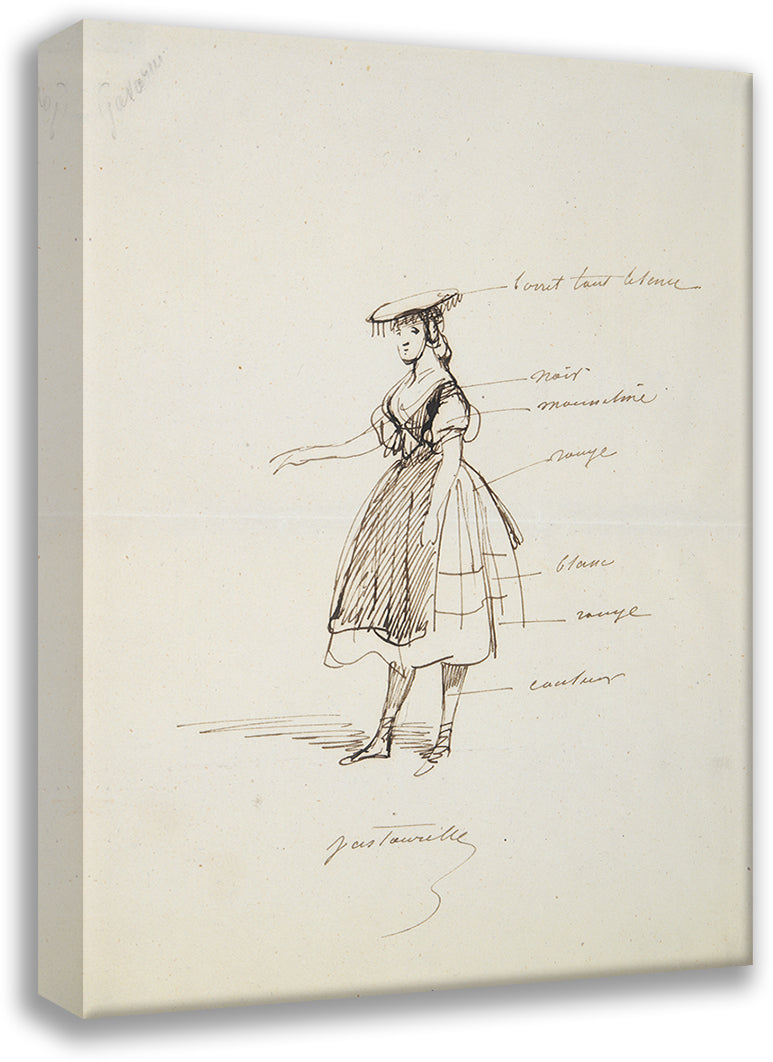 Gavarni
tout blanc
noir
mousseline
rouge
blanc
rouge
couleur
pastourelle